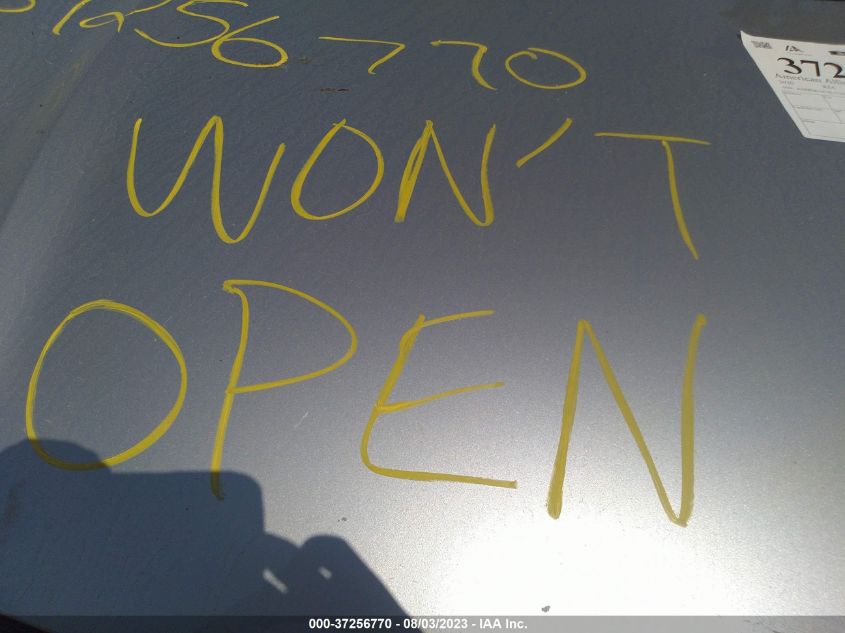 7256770
372
American Alli
WON'T
OPEN
000-37256770 - 08/03/2023 - IAA Inc.